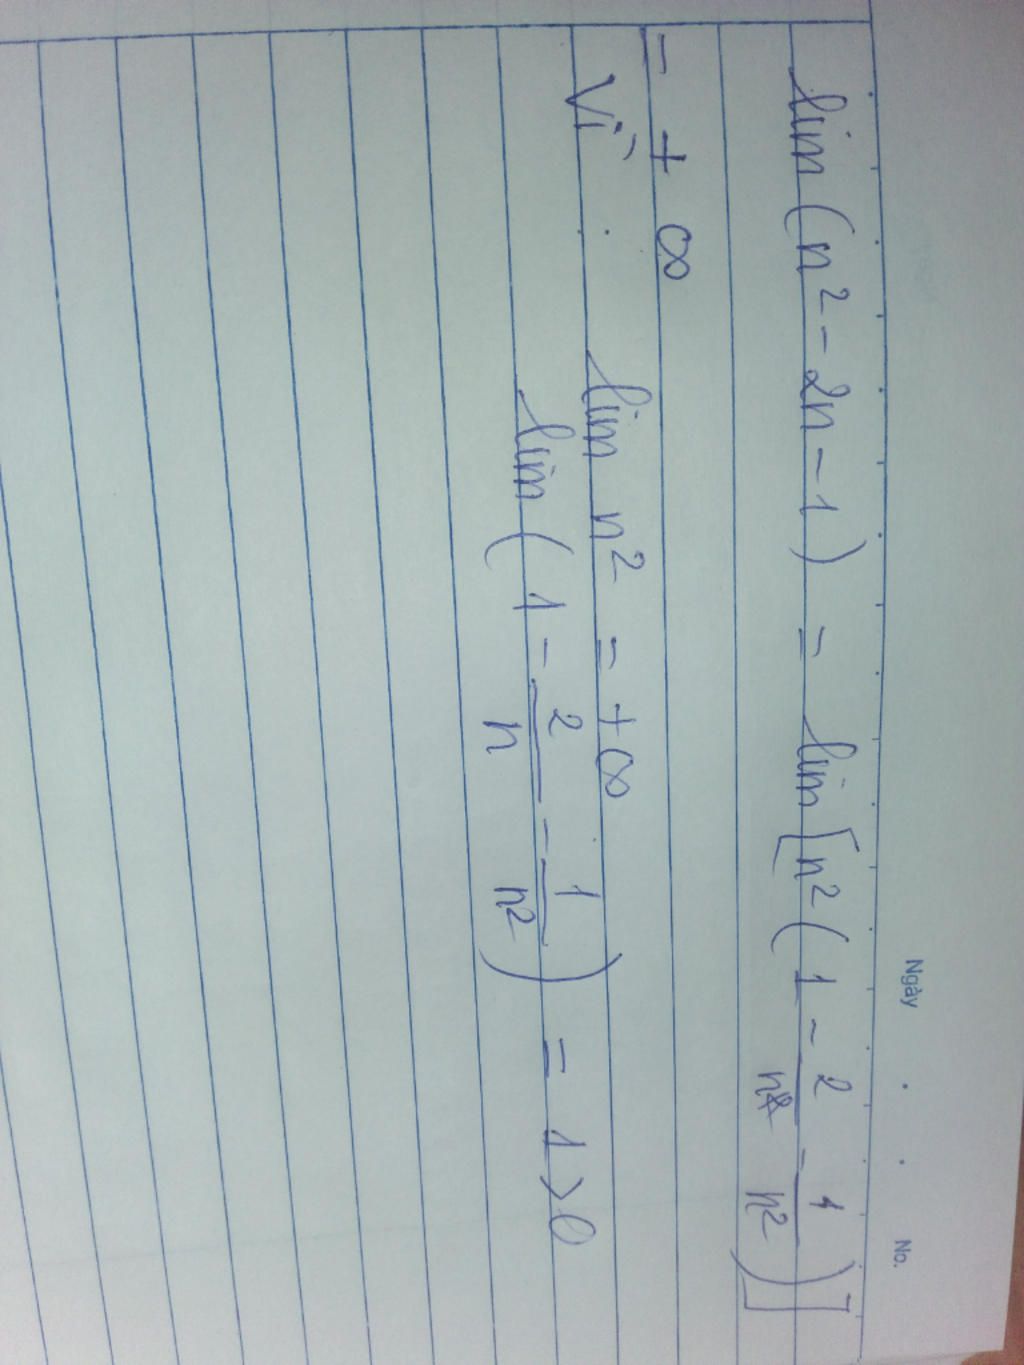 Ngày . . No.
lim (n² - 2n - 1) = lim [n² (1 - 2/n - 1/n²)]
= + ∞
Vì lim n² = + ∞
lim (1 - 2/n - 1/n²) = 1 > 0